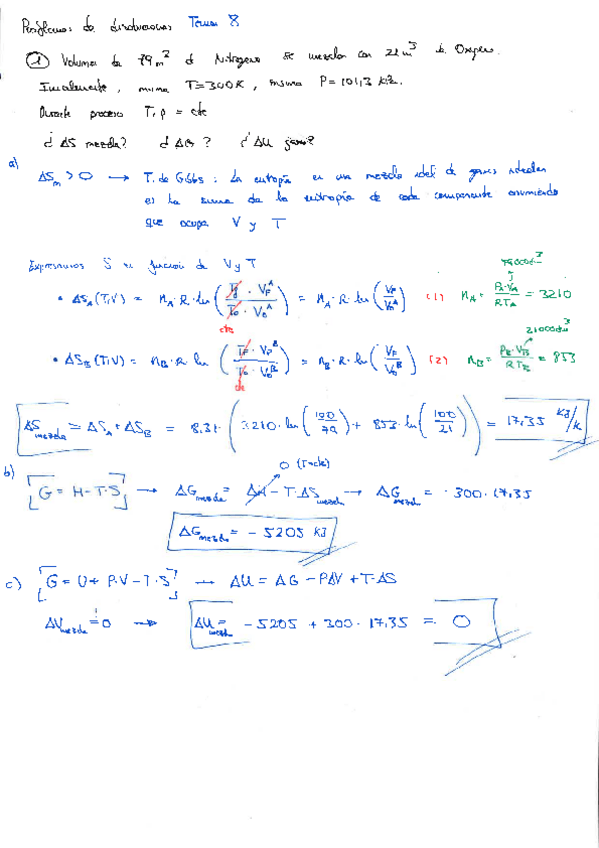 Problemas de disoluciones Tema 8
① Volumen de 79m² d Nitrogeno se mezclan con 21m³ de Oxigeno.
Inicialmente, misma T=300K, misma P=101,3 kPa.
Durante proceso T, p = cte
¿ΔS mezcla? ¿ΔG? ¿ΔU gases?
a) ΔSm > 0 → T. de Gibbs: La entropía en una mezcla ideal de gases ideales
es la suma de la entropía de cada componente asumiendo
que ocupa V y T
79000dm³
Expresamos S en función de V y T
• ΔSA(T,V) = nA·R·ln(TF/T0 · VFA/V0A) = nA·R·ln(VF/V0A) (1) nA = PA·VA/RTA = 3210
cte
21000dm³
• ΔSB(T,V) = nB·R·ln(TF/T0 · VFB/V0B) = nB·R·ln(VF/V0B) (2) nB = PB·VB/RTB = 853
cte
ΔSmezcla = ΔSA + ΔSB = 8,31·(3210·ln(100/79) + 853·ln(100/21)) = 17,35 KJ/K
0 (T=cte)
b) G = H-T·S → ΔGmezcla = ΔH - T·ΔSmezcla → ΔGmezcla = -300·17,35
ΔGmezcla = -5205 KJ
c) G = U + P·V - T·S → ΔU = ΔG - PΔV + T·ΔS
ΔVmezcla = 0 → ΔUmezcla = -5205 + 300·17,35 = 0